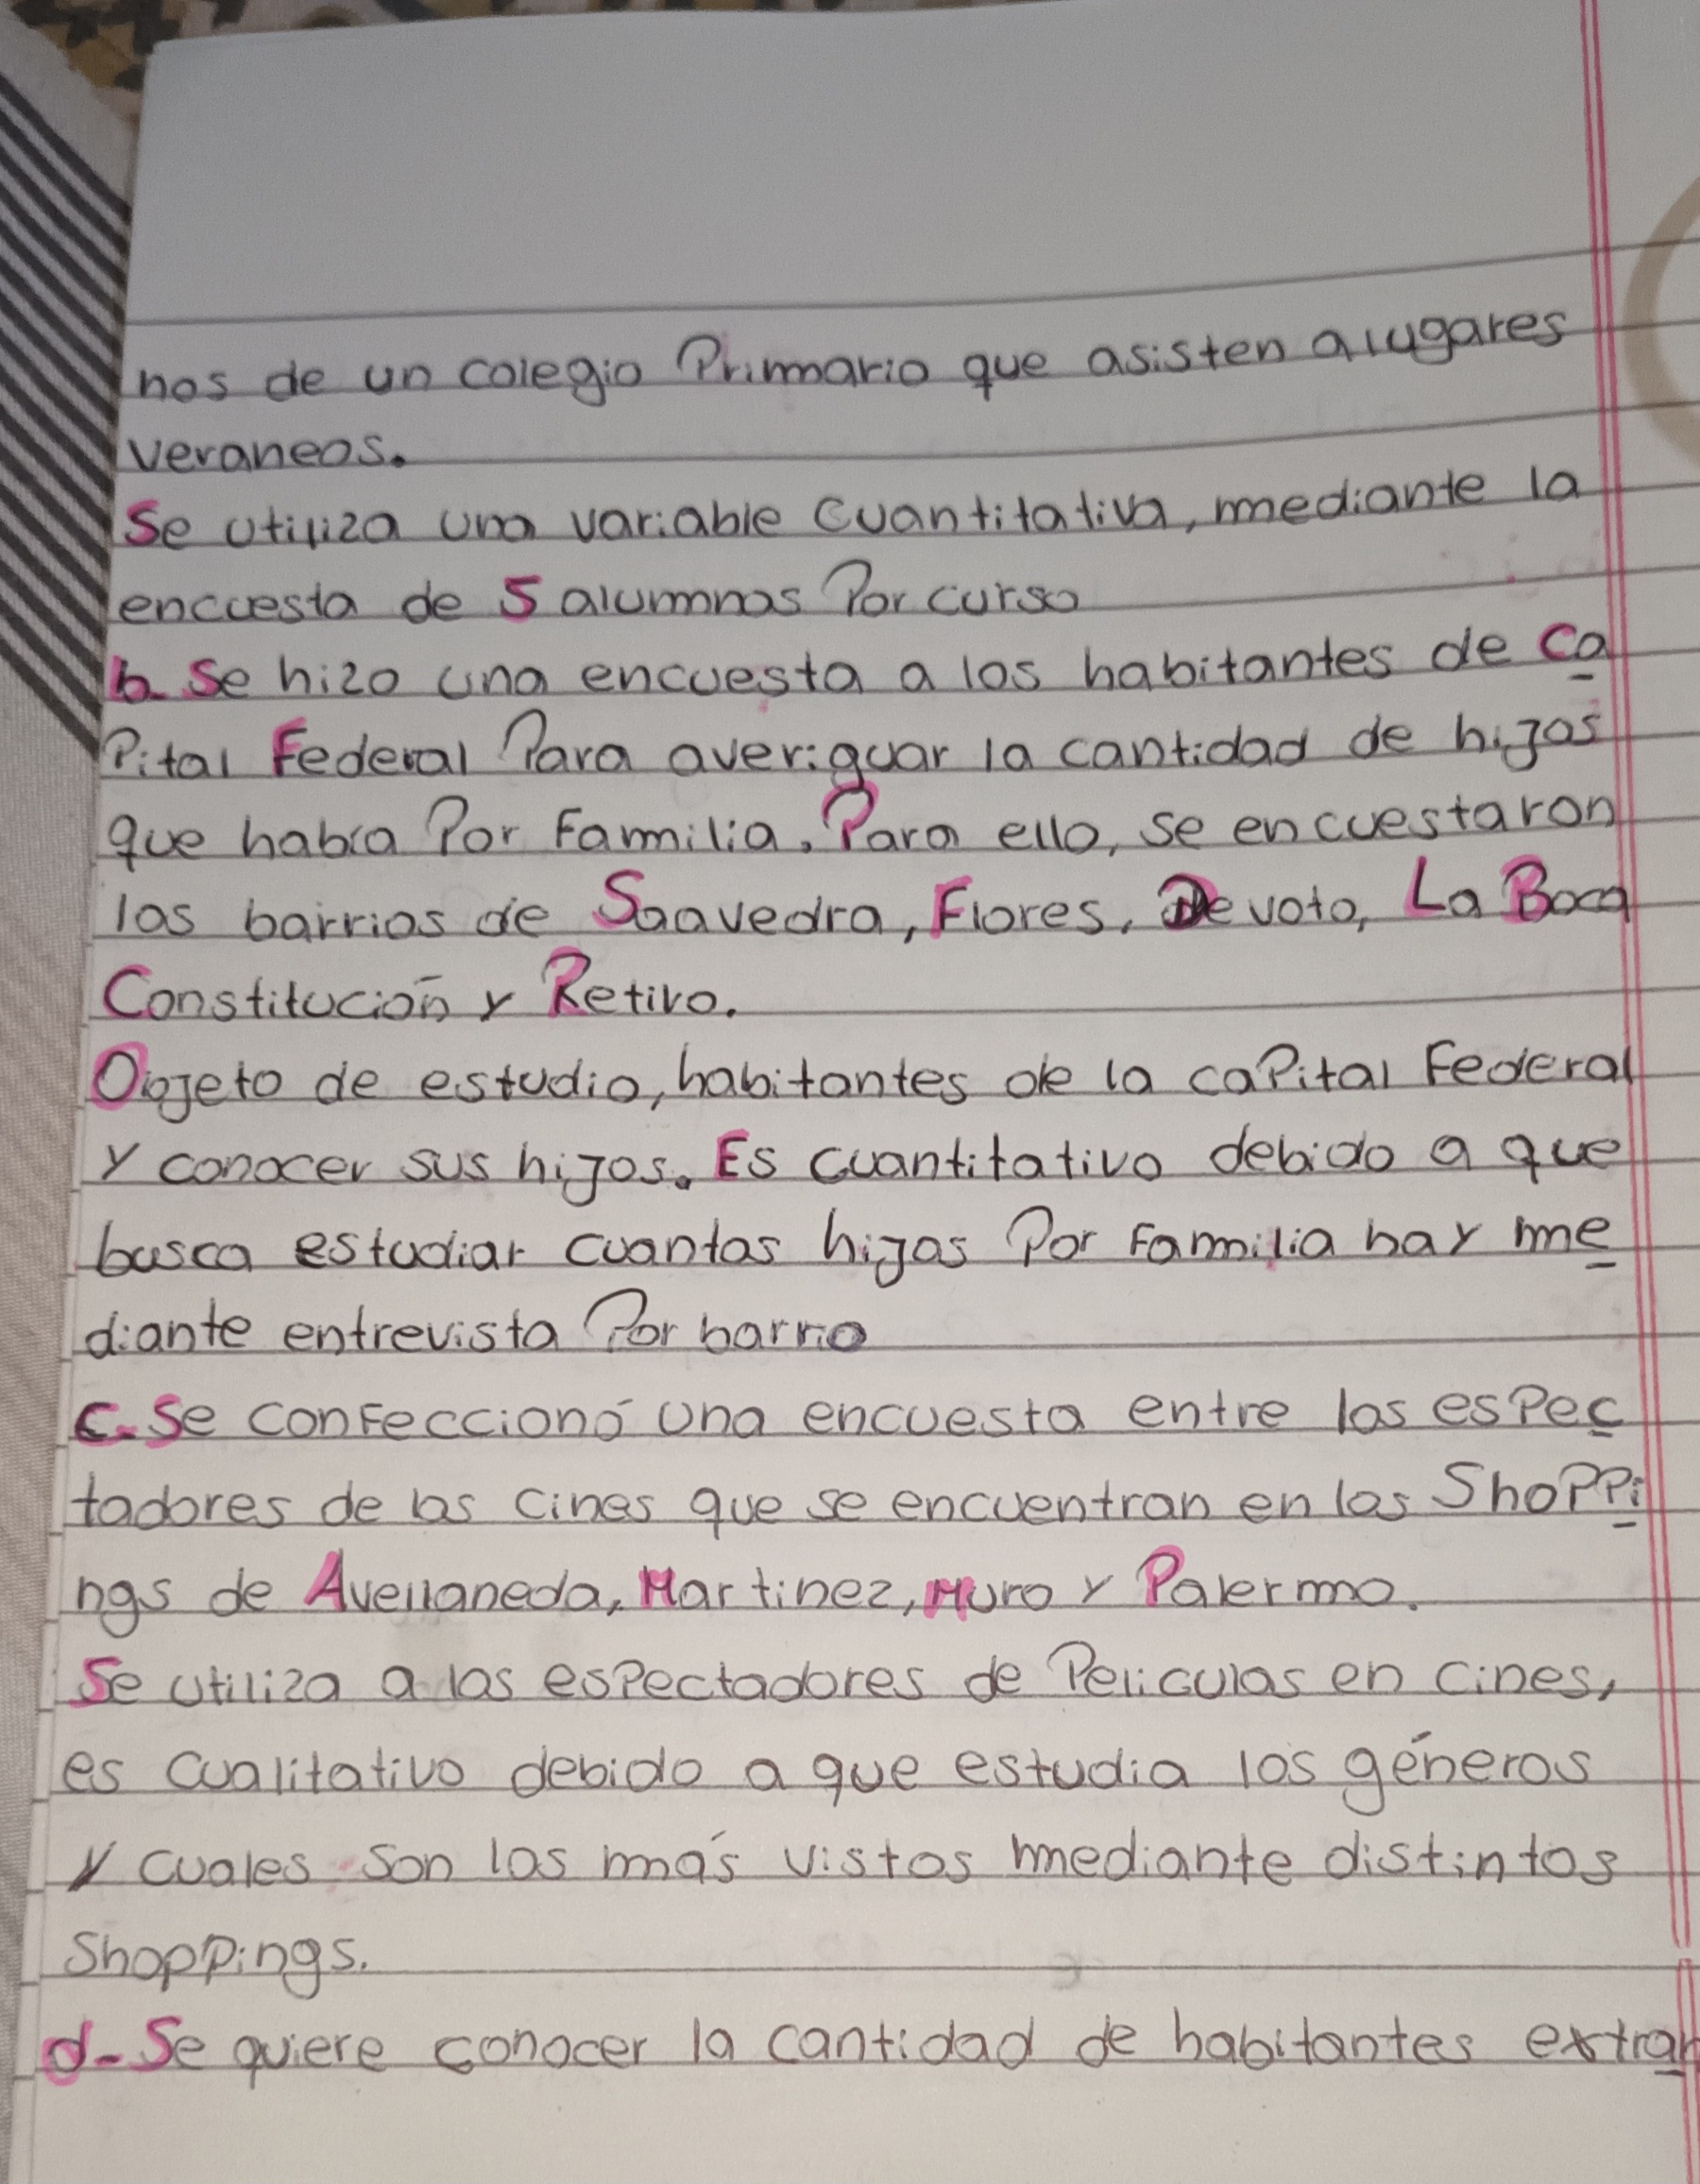 nos de un colegio Primario que asisten a lugares
veraneos.
Se utiliza una variable cuantitativa, mediante la
encuesta de 5 alumnos Por curso
b- Se hizo una encuesta a los habitantes de Ca
Pital Federal Para averiguar la cantidad de hijos
que había Por Familia. Para ello, se encuestaron
los barrios de Saavedra, Flores, Devoto, La Boca
Constitución y Retiro.
Objeto de estudio, habitantes de la caPital Federal
y conocer sus hijos. Es cuantitativo debido a que
busca estudiar cuantos hijos Por Familia hay me
diante entrevista Por barrio
c- Se confeccionó una encuesta entre los esPec
tadores de los cines que se encuentran en los ShoPPi
ngs de Avellaneda, Martinez, Muro y Palermo.
Se utiliza a los esPectadores de Peliculas en cines,
es cualitativo debido a que estudia los géneros
y cuales son los más vistos mediante distintos
Shoppings.
d- Se quiere conocer la cantidad de habitantes extran